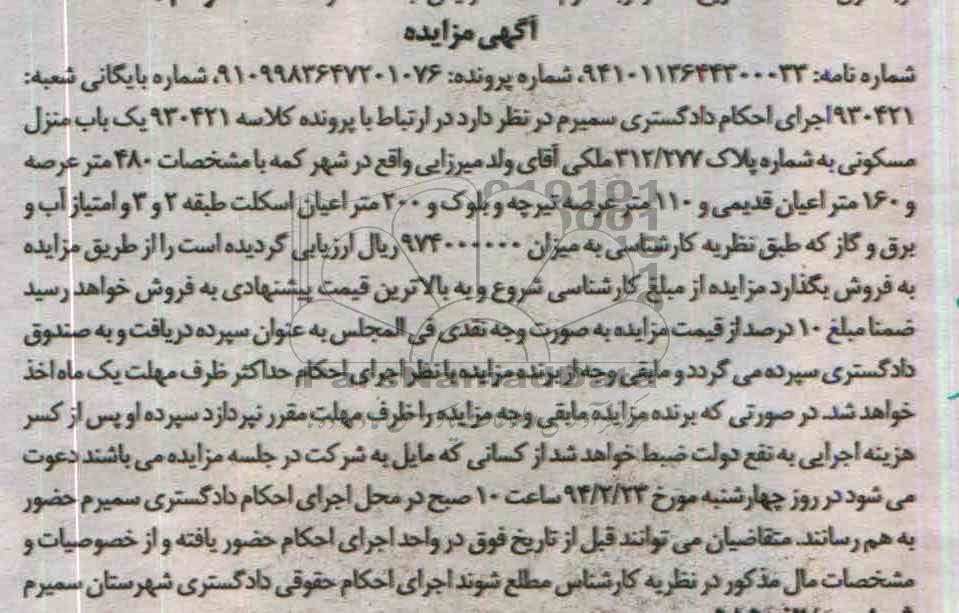 آگهی مزایده
شماره نامه: ۹۴۱۰۱۱۳۶۴۴۳۰۰۰۳۳، شماره پرونده: ۹۱۰۹۹۸۳۶۴۷۲۰۱۰۷۶، شماره بایگانی شعبه:
۹۳۰۴۲۱ اجرای احکام دادگستری سمیرم در نظر دارد در ارتباط با پرونده کلاسه ۹۳۰۴۲۱ یک باب منزل
مسکونی به شماره پلاک ۳۱۲/۲۷۷ ملکی آقای ولد میرزایی واقع در شهر کمه با مشخصات ۴۸۰ متر عرصه
و ۱۶۰ متر اعیان قدیمی و ۱۱۰ متر عرصه تیرچه و بلوک و ۲۰۰ متر اعیان اسکلت طبقه ۲ و ۳ و امتیاز آب و
برق و گاز که طبق نظریه کارشناسی به میزان ۹۷۴۰۰۰۰۰۰ ریال ارزیابی گردیده است را از طریق مزایده
به فروش بگذارد مزایده از مبلغ کارشناسی شروع و به بالاترین قیمت پیشنهادی به فروش خواهد رسید
ضمنا مبلغ ۱۰ درصد از قیمت مزایده به صورت وجه نقدی فی المجلس به عنوان سپرده دریافت و به صندوق
دادگستری سپرده می گردد و مابقی وجه از برنده مزایده با نظر اجرای احکام حداکثر ظرف مهلت یک ماه اخذ
خواهد شد. در صورتی که برنده مزایده مابقی وجه مزایده را ظرف مهلت مقرر نپردازد سپرده او پس از کسر
هزینه اجرایی به نفع دولت ضبط خواهد شد از کسانی که مایل به شرکت در جلسه مزایده می باشند دعوت
می شود در روز چهارشنبه مورخ ۹۴/۲/۲۳ ساعت ۱۰ صبح در محل اجرای احکام دادگستری سمیرم حضور
به هم رسانند. متقاضیان می توانند قبل از تاریخ فوق در واحد اجرای احکام حضور یافته و از خصوصیات و
مشخصات مال مذکور در نظریه کارشناس مطلع شوند اجرای احکام حقوقی دادگستری شهرستان سمیرم
ParsNamadData